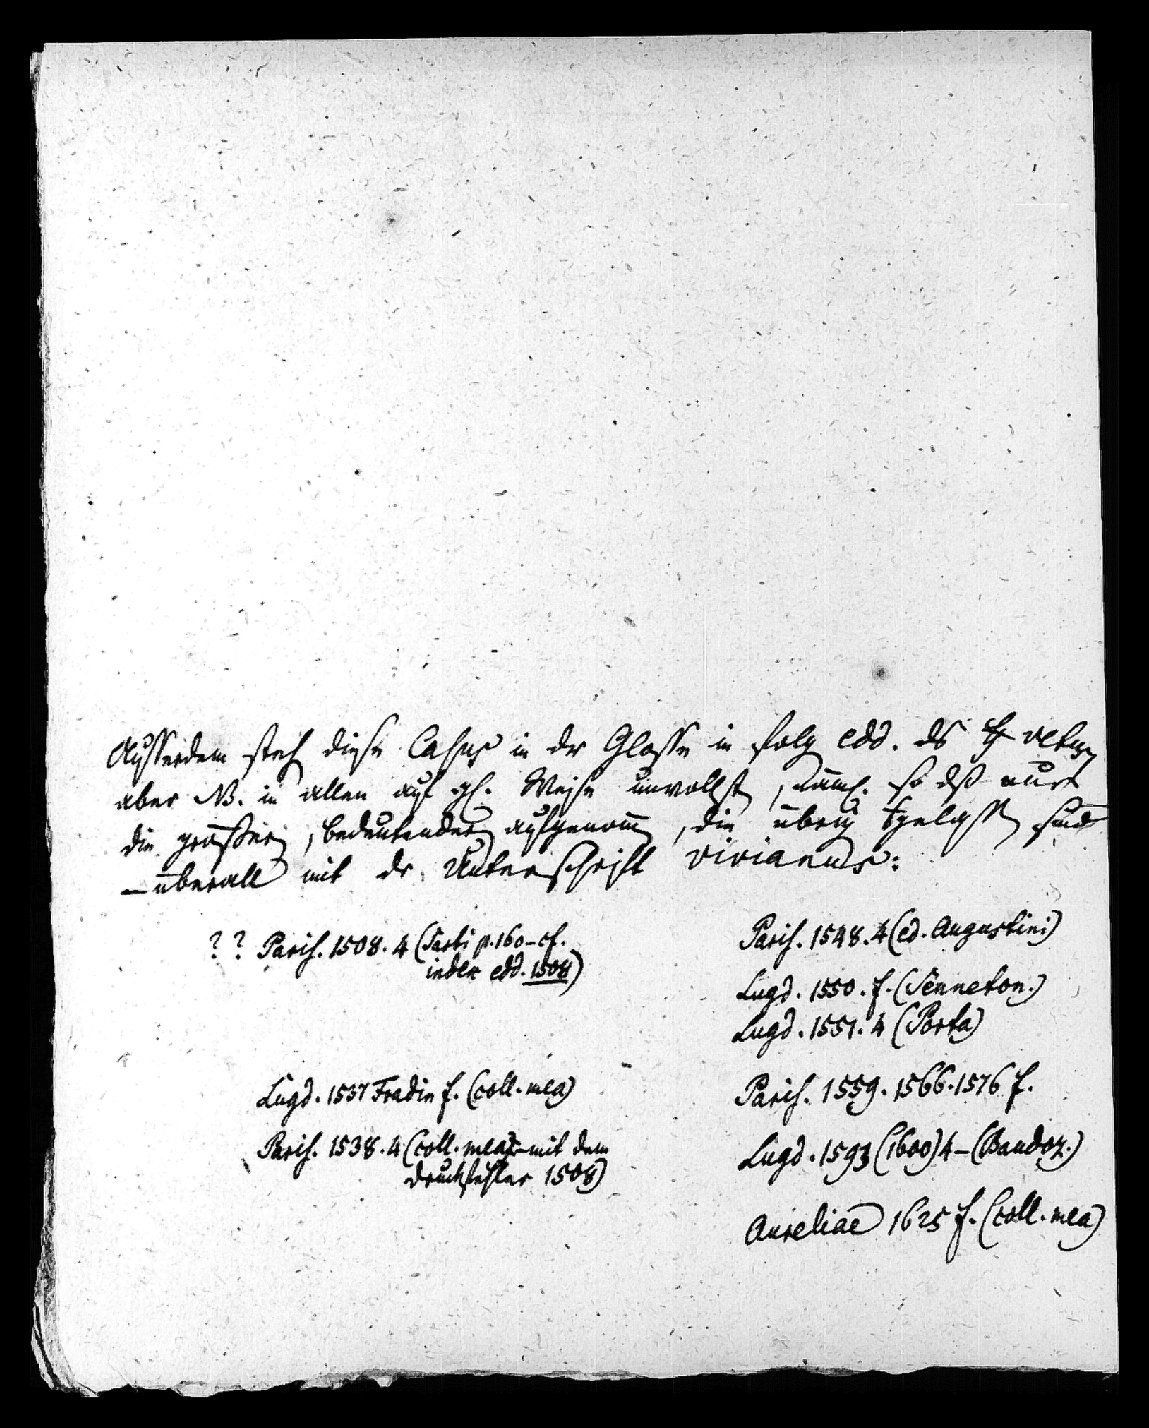 Ausserdem steh diese Casus in dr Glosse in folg edd. ds ff vetus,
aber NB. in allen auf gl. Weise unvollst, näml. so dß nur
die größern, bedeutendern aufgenomm, die übrig sind
– überall mit dr Unterschrift Vivianus:
? ? Paris. 1508. 4 (Sarti p. 160 – cf.
index edd. 1508)
Lugd. 1537 Fradin f. (coll. mea)
Paris. 1538. 4 (coll. mea – mit dem
Druckfehler 1508)
Paris. 1548. 4 (ed. Augustini)
Lugd. 1550. f. (Senneton.)
Lugd. 1551. 4 (Porta)
Paris. 1559. 1566. 1576 f.
Lugd. 1593 (1600) 4 – (Baudoz.)
Aureliae 1625 f. (coll. mea)